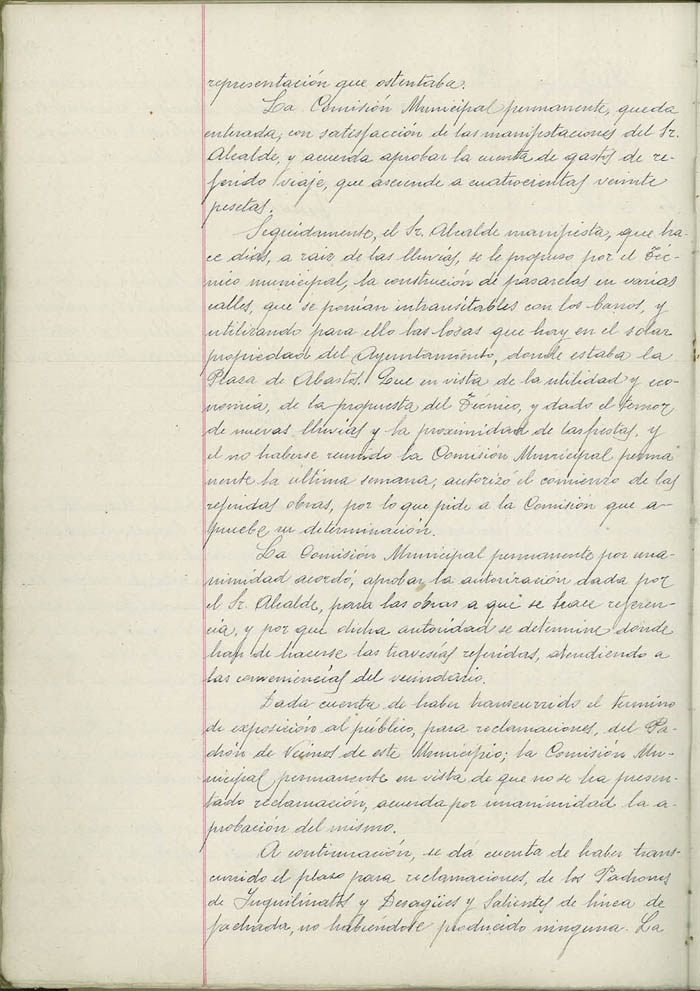 representación que ostentaba.
La Comisión Municipal permanente, queda
enterada, con satisfacción de las manifestaciones del Sr.
Alcalde, y acuerda aprobar la cuenta de gastos de re-
ferido viaje, que asciende a cuatrocientas veinte
pesetas.
Seguidamente, el Sr. Alcalde manifiesta, que ha-
ce dias, a raiz de las lluvias, se le propuso por el Téc-
nico municipal, la construción de pasarelas en varias
calles, que se ponían intransitables con los barros, y
utilizando para ello las losas que hay en el solar
propiedad del Ayuntamiento, donde estaba la
Plaza de Abastos. Que en vista de la utilidad y eco-
nomia, de la propuesta del Técnico, y dado el temor
de nuevas lluvias y la proximidad de las fiestas, y
el no haberse reunido la Comisión Municipal perma
nente la última semana, autorizó el comienzo de las
referidas obras, por lo que pide a la Comisión que a-
pruebe su determinación.
La Comisión Municipal permanente por una-
nimidad acordó, aprobar la autorización dada por
el Sr. Alcalde, para las obras a que se hace referen-
cia, y por que dicha autoridad se determine donde
han de hacerse las travesías referidas, atendiendo a
las conveniencias del vecindario.
Dada cuenta de haber transcurrido el termino
de exposición al público, para reclamaciones, del Pa-
drón de Vecinos de este Municipio; la Comisión Mu-
nicipal permanente en vista de que no se ha presen-
tado reclamación, acuerda por unanimidad la a-
probación del mismo.
A continuación, se dá cuenta de haber trans-
currido el plazo para reclamaciones, de los Padrones
de Inquilinatos y Desagües y Salientes de línea de
fachada, no habiéndose producido ninguna. La